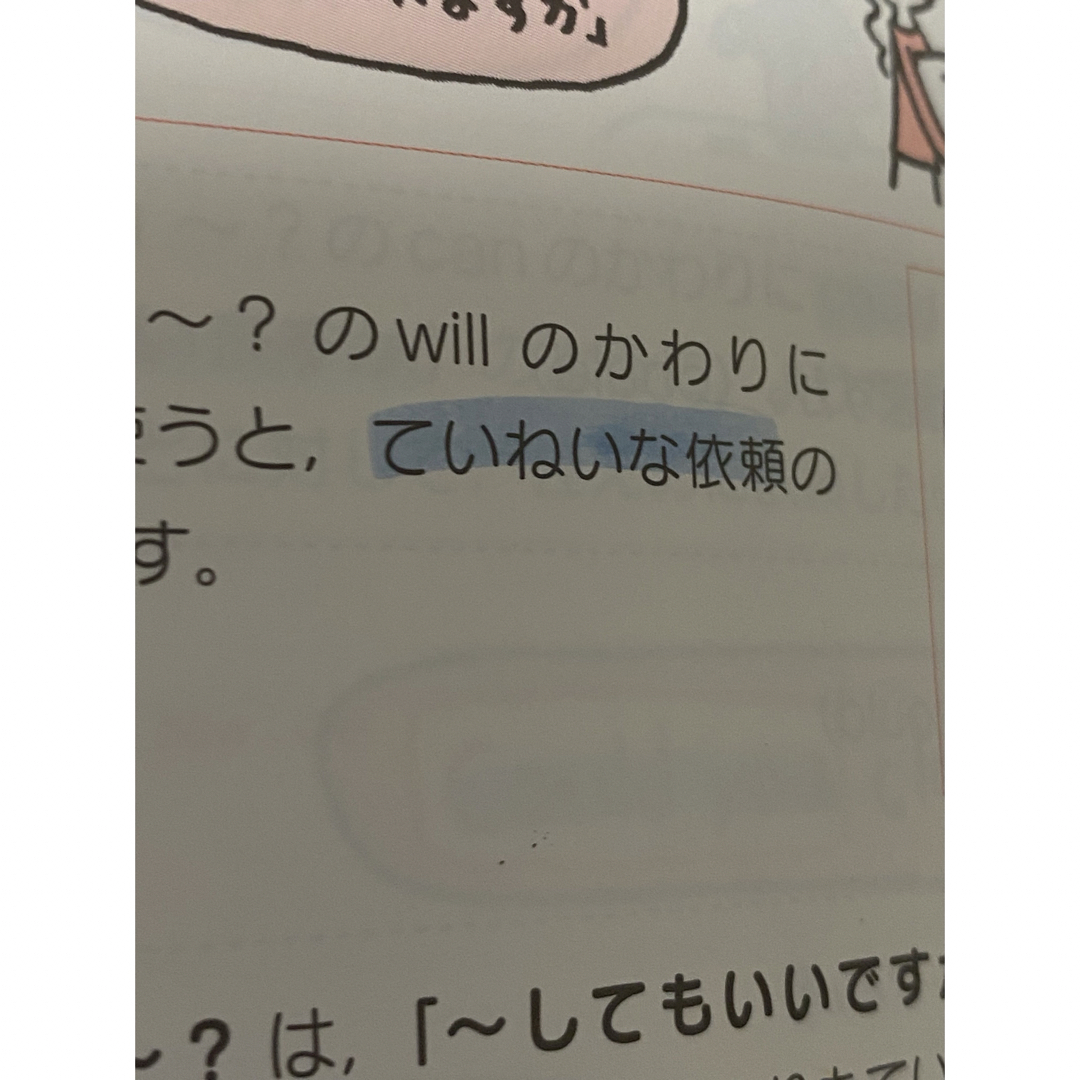 ますか」
～？のwillのかわりに
うと，ていねいな依頼の
す。
～？は，「～してもいいです